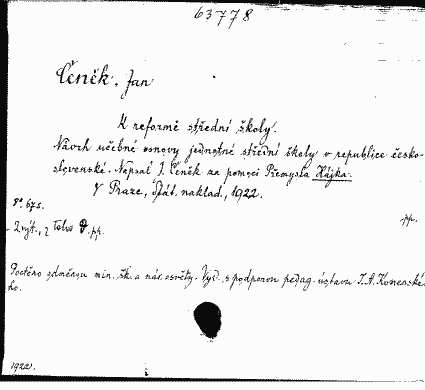 63778
Čeněk, Jan
K reformě střední školy.
Návrh učebné osnovy jednotné střední školy v republice česko-
slovenské. Napsal J. Čeněk za pomoci Přemysla Hájka.
V Praze, Stát. naklad., 1922.
8° 675.
pp.
Poctěno odměnou min. šk. a nár. osvěty. Vyd. s podporou pedag. ústavu J. A. Komenské-
ho.
1922.